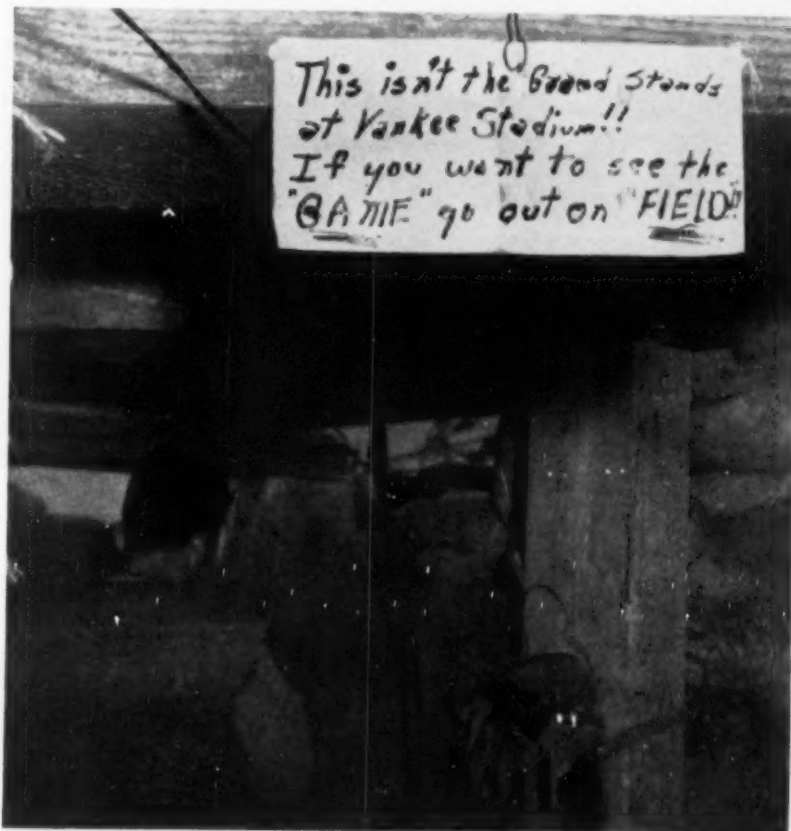 This isn't the "Grand Stands
at Yankee Stadium!!
If you want to see the
"GAME" go out on "FIELD"!